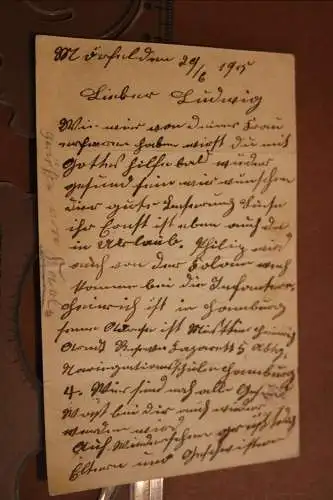 Mörfelden 29/6 1915
Lieber Ludwig
Wie wir von deiner Frau
erfaren haben wirst du mit
Gottes hilfe bald wieder
gesund sein wir wünschen
dier gute Besserung
ihr Ernst ist eben auch da
in Urlaub. Philip wird
auch von der Kolone weg
komme bei die Infanterie
heinrich ist in hamburg
seine Adresse ist Musketier heinrich
Arndt Reserve Lazarett 5 Abtg.
Navigationsschule hamburg
4. Wier sind noch alle Gesund
was bei dir auch wieder
werden wird
Auf Wiedersehen grüst dich
Eltern und Geschwister